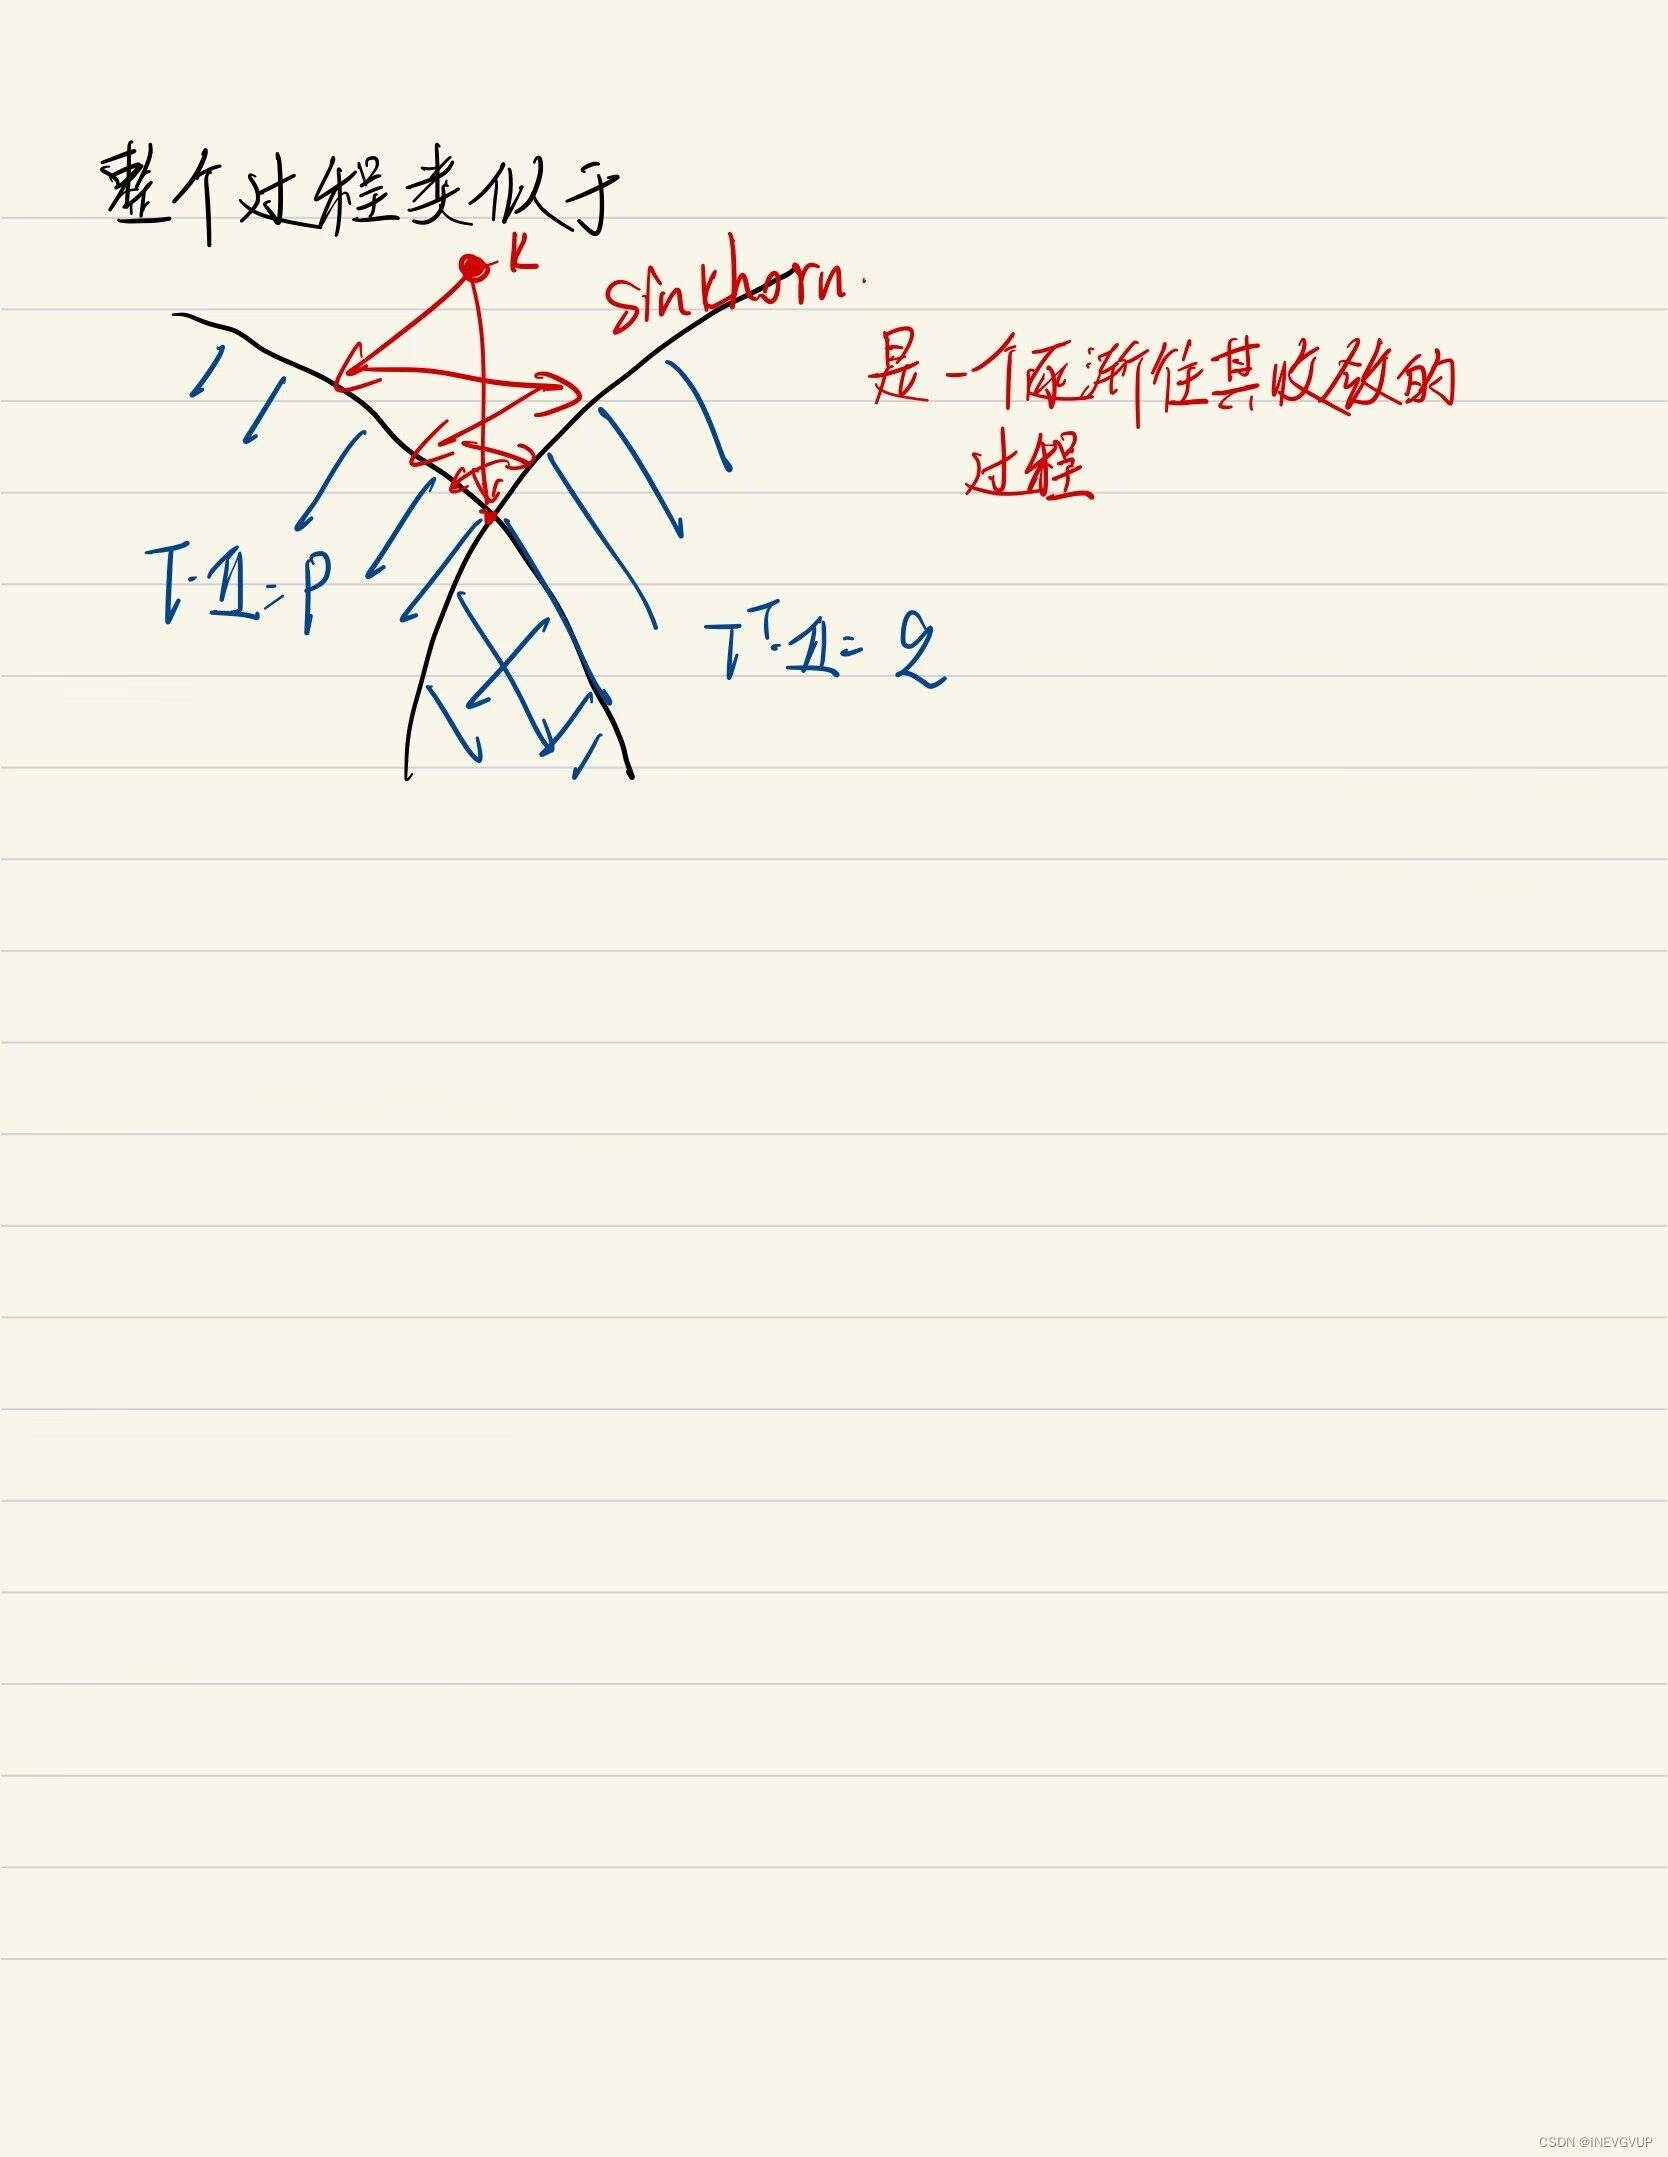 整个过程类似于
K
sinkhorn.
是一个逐渐往其收敛的
过程
T·𝟙=P
Tᵀ·𝟙=Q
CSDN @INEVGVUP